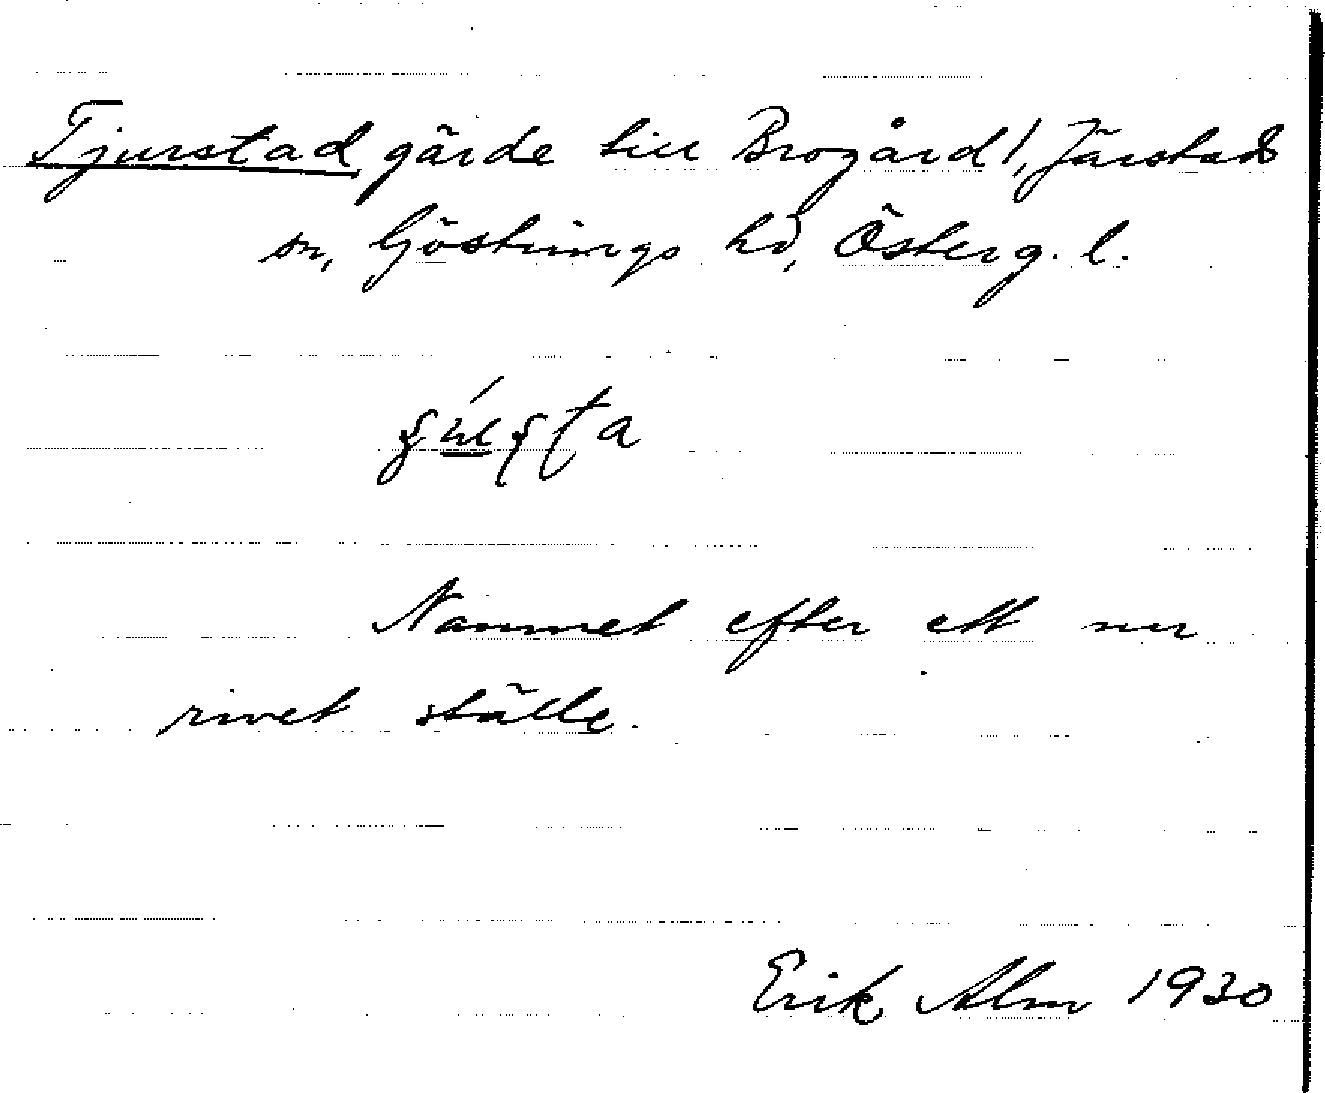 Tjurstad, gärde till Brogård 1, Järstads
sn, Göstrings hd, Österg. l.
Namnet efter ett ner
rivet ställe.
Erik Alm 1930